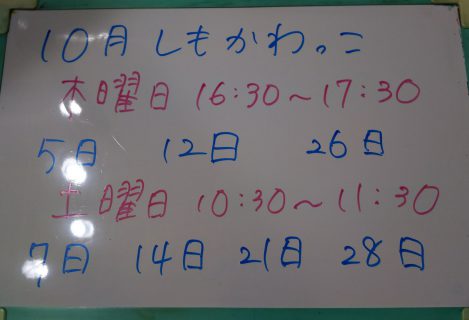 10月 しもかわっこ
木曜日 16:30～17:30
5日 12日 26日
土曜日 10:30～11:30
7日 14日 21日 28日